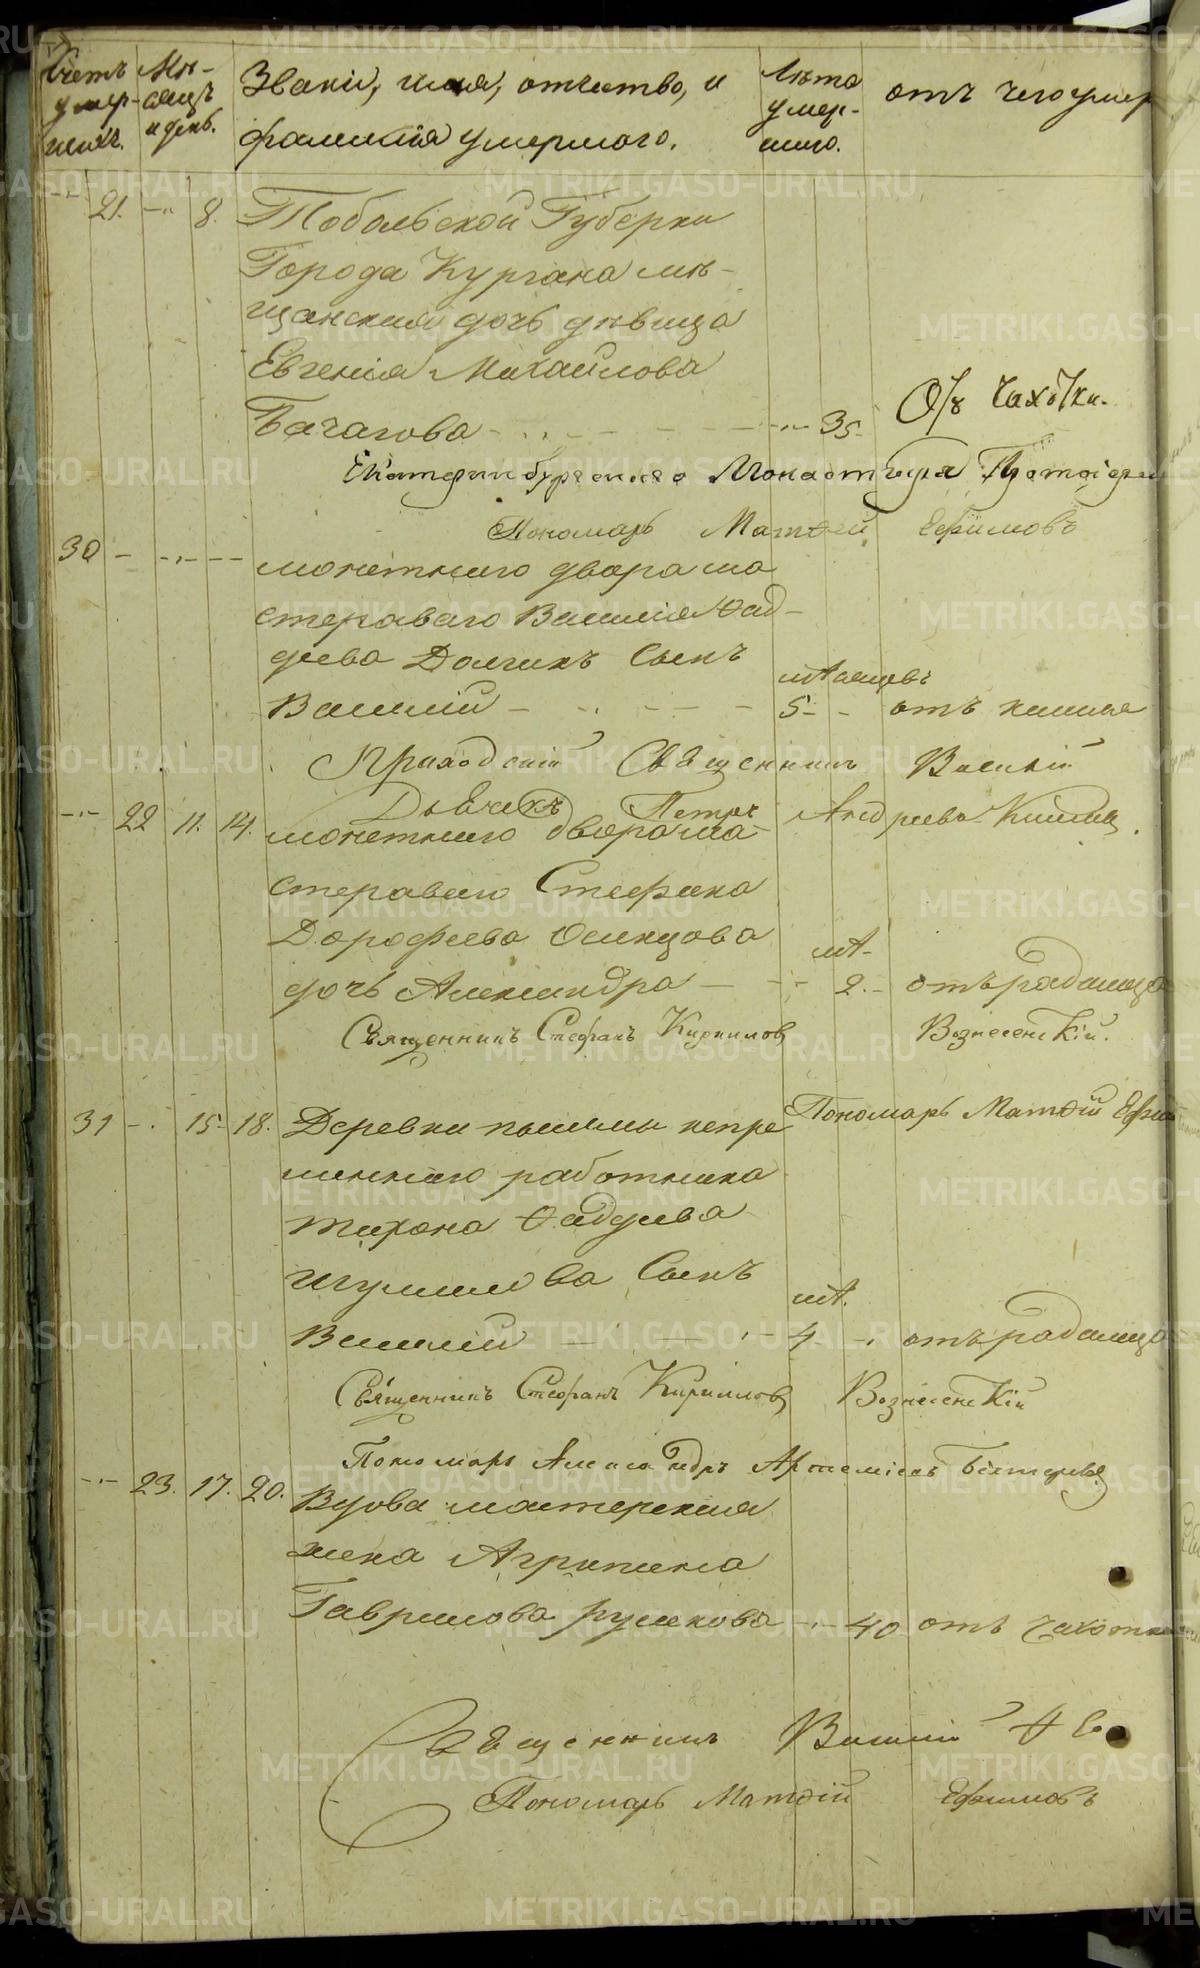 Счетъ умер- шихъ.
Мѣ- сяцъ и день.
Званіе, имя, отчество, и
фамилія умершаго.
Лѣта умер- шаго.
отъ чего умер
21. 8. Тобольской Губерніи
Города Кургана мѣ-
щанская дочь дѣвица
Евгенія Михайлова
Бачагова 35. От Чахотки.
Екатеринбургскаго Монастыря Протоіерей
Пономарь Матѳій Ефимовъ
30
монетнаго двора ма
стероваго Василія Ѳад-
деева Долгихъ Сынъ
мѣсяцевъ
Василій 5 отъ кашля
Приходскій Священникъ Василій
Дьячекъ Петръ Андреевъ
22 11. 14. монетнаго двора ма-
стероваго Стефана
Дорофеева Осинцова
мѣ-
дочь Александра 2. отъ родимца
Священникъ Стефанъ Кириловъ Вознесенскій.
Пономарь Матѳій Ефим
31 15 18. Деревни пышмы непре
мѣннаго работника
Тихона Ѳаддеева
Шумилова Сынъ
мѣ.
Василій 4 отъ родимца
Священникъ Стефанъ Кириловъ Вознесенскій
Пономарь Александръ Артеміевъ
23. 17. 20. Вдова мастерская
жена Агрипина
Гаврилова русикова 40 отъ чахотки
Священникъ Василій
Пономарь Матѳій Ефимовъ
METRIKI.GASO-URAL.RU